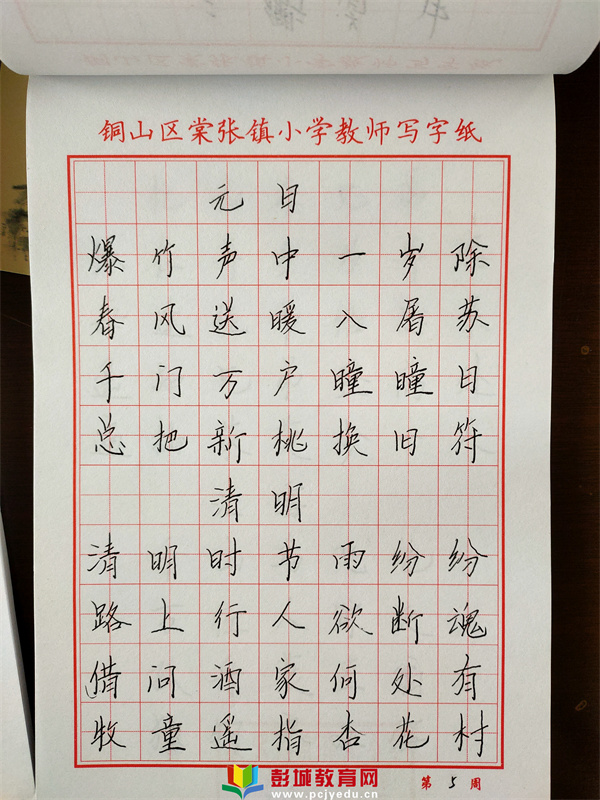 铜山区棠张镇小学教师写字纸
元日
爆竹声中一岁除
春风送暖入屠苏
千门万户瞳瞳日
总把新桃换旧符
清明
清明时节雨纷纷
路上行人欲断魂
借问酒家何处有
牧童遥指杏花村
第5周
彭城教育网
www.pcjyedu.cn